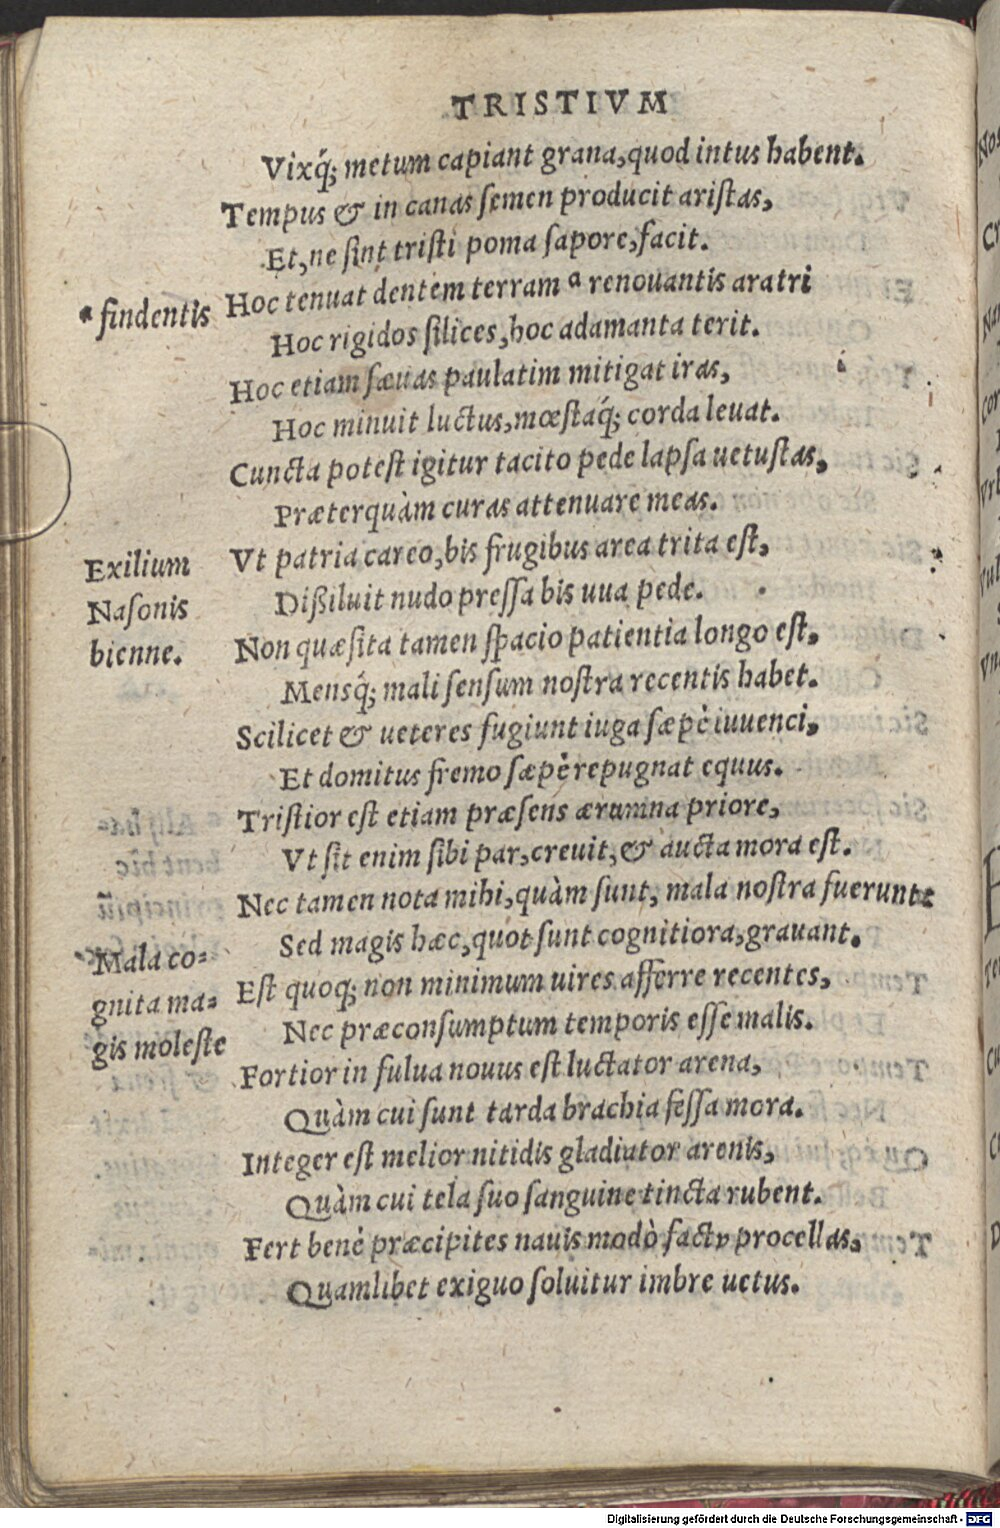 TRISTIVM
Vixq́; metum capiant grana, quod intus habent.
Tempus & in canas ſemen producit ariſtas,
Et, ne ſint triſti poma ſapore, facit.
Hoc tenuat dentem terram ᵃ renouantis aratri
ᵃ findentis
Hoc rigidos ſilices, hoc adamanta terit.
Hoc etiam ſæuas paulatim mitigat iras,
Hoc minuit luctus, mœſtaq́; corda leuat.
Cuncta poteſt igitur tacito pede lapſa uetuſtas,
Præterquàm curas attenuare meas.
Vt patria careo, bis frugibus area trita eſt,
Dißiluit nudo preſſa bis uua pede.
Exilium
Naſonis
bienne.
Non quæſita tamen ſpacio patientia longo eſt,
Mensq́; mali ſenſum noſtra recentis habet.
Scilicet & ueteres fugiunt iuga ſæpè iuuenci,
Et domitus fremo ſæpè repugnat equus.
Triſtior eſt etiam præſens ærumna priore,
Vt ſit enim ſibi par, creuit, & aucta mora eſt.
Nec tamen nota mihi, quàm ſunt, mala noſtra fuerunt:
Sed magis hæc, quot ſunt cognitiora, grauant.
Mala co-
gnita ma-
gis moleſte
Eſt quoq; non minimum uires afferre recentes,
Nec præconſumptum temporis eſſe malis.
Fortior in fulua nouus eſt luctator arena,
Quàm cui ſunt tarda brachia feſſa mora.
Integer eſt melior nitidis gladiator arenis,
Quàm cui tela ſuo ſanguine tincta rubent.
Fert benè præcipites nauis modò facta procellas,
Quamlibet exiguo ſoluitur imbre uetus.
Digitalisierung gefördert durch die Deutsche Forschungsgemeinschaft - DFG